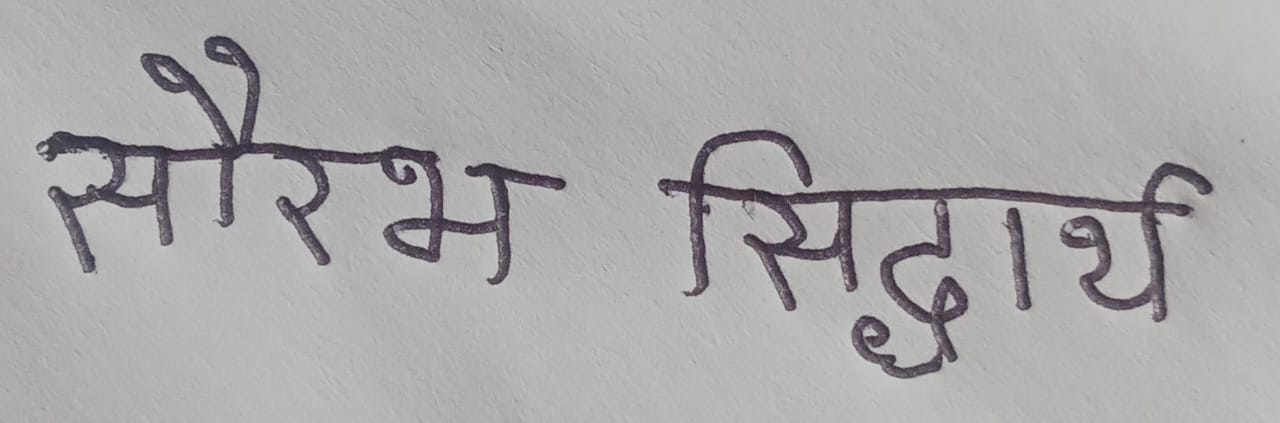 सौरभ सिद्धार्थ